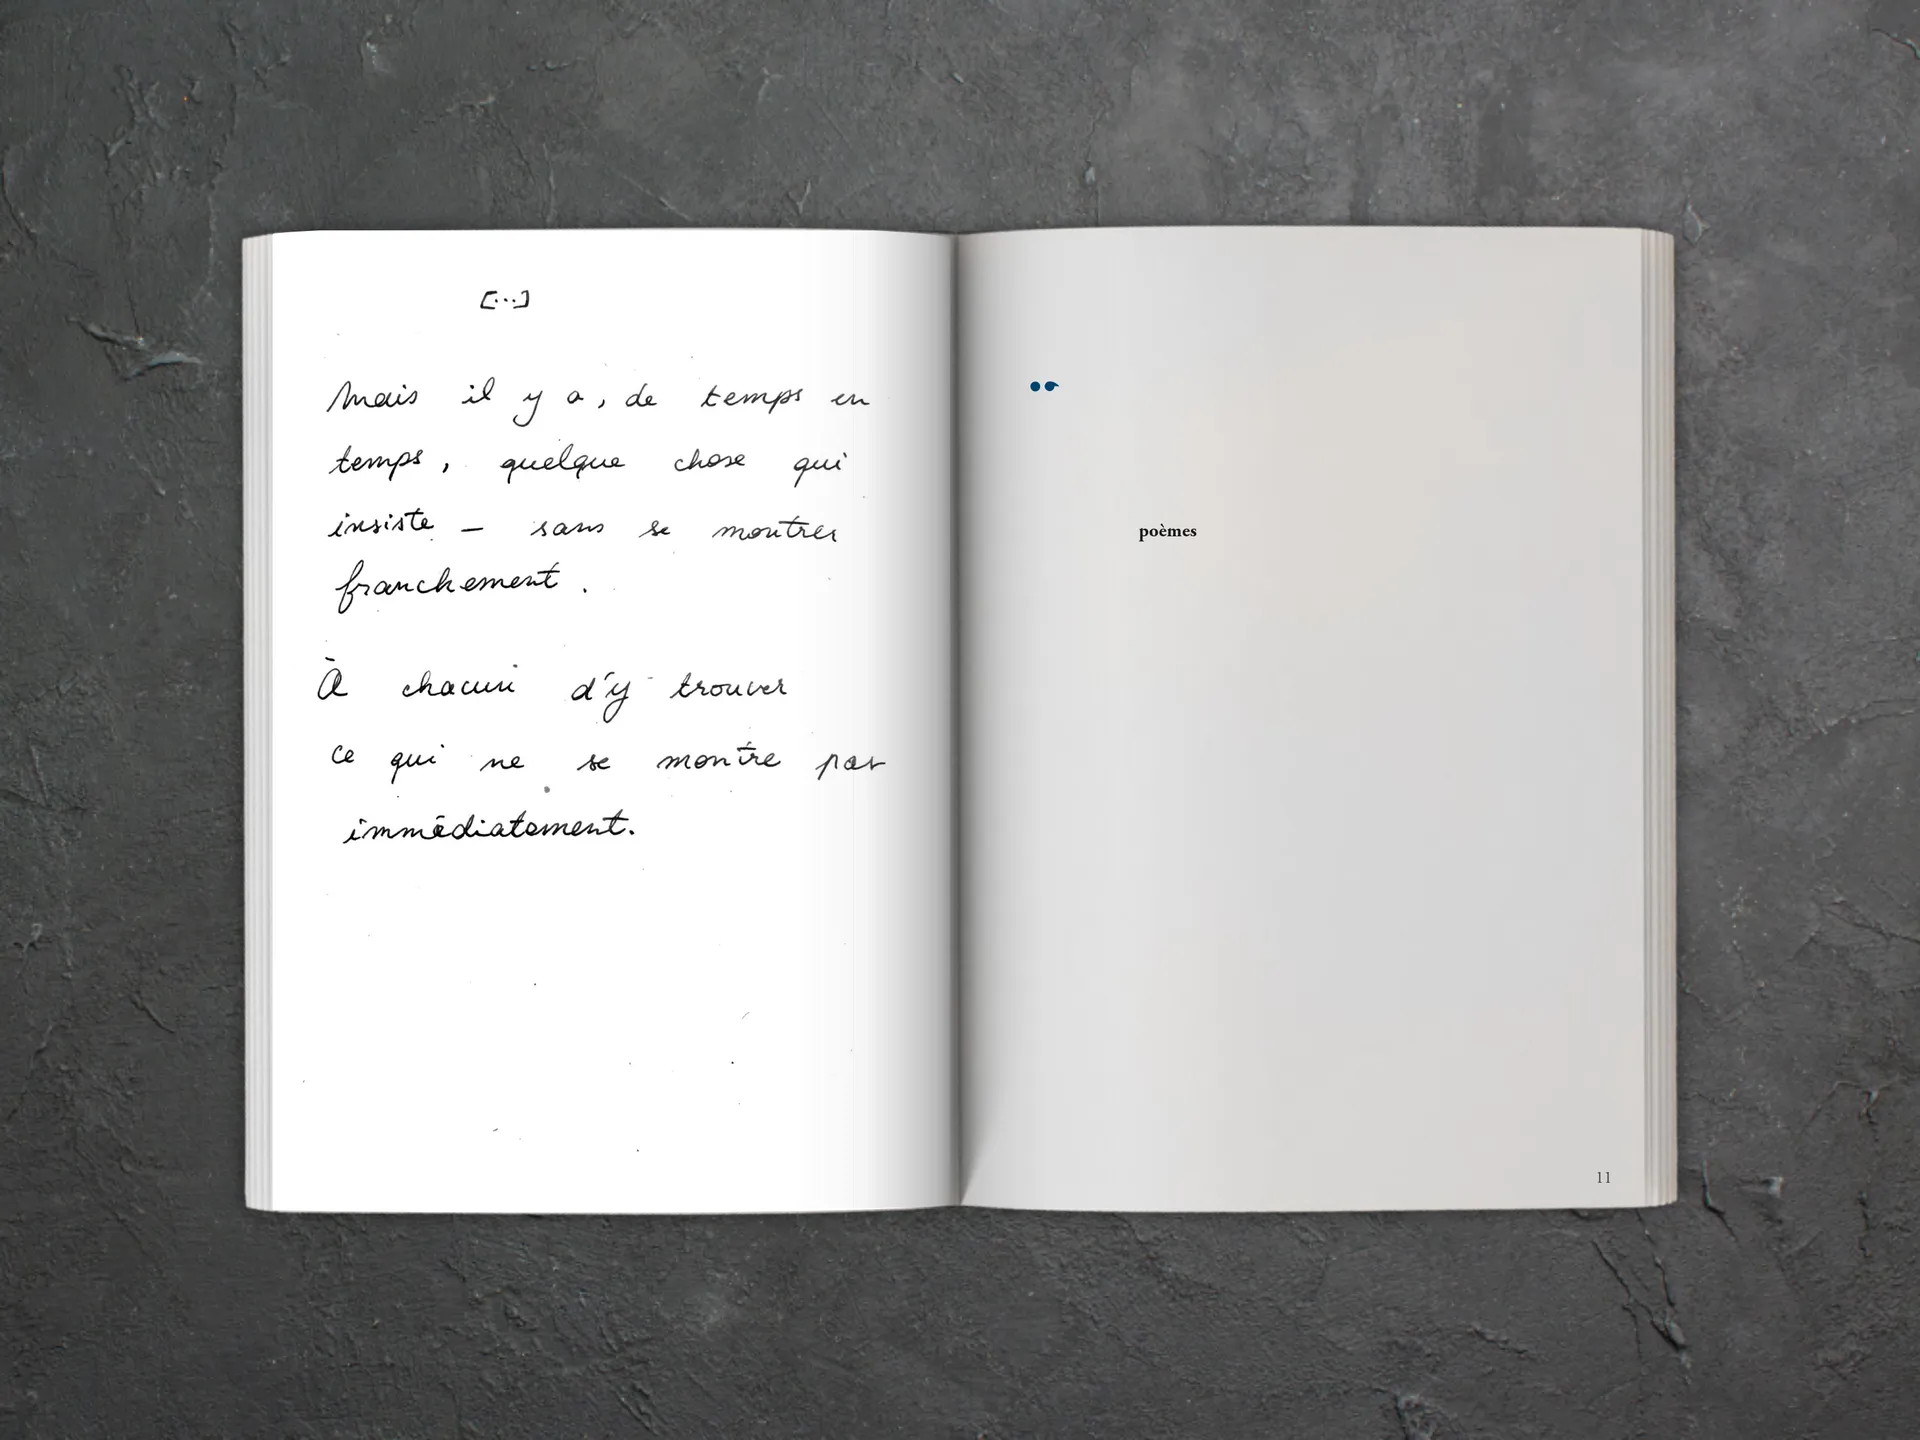 [...]
Mais il y a, de temps en
temps, quelque chose qui
insiste – sans se montrer
franchement.
À chacun d'y trouver
ce qui ne se montre pas
immédiatement.
poèmes
11